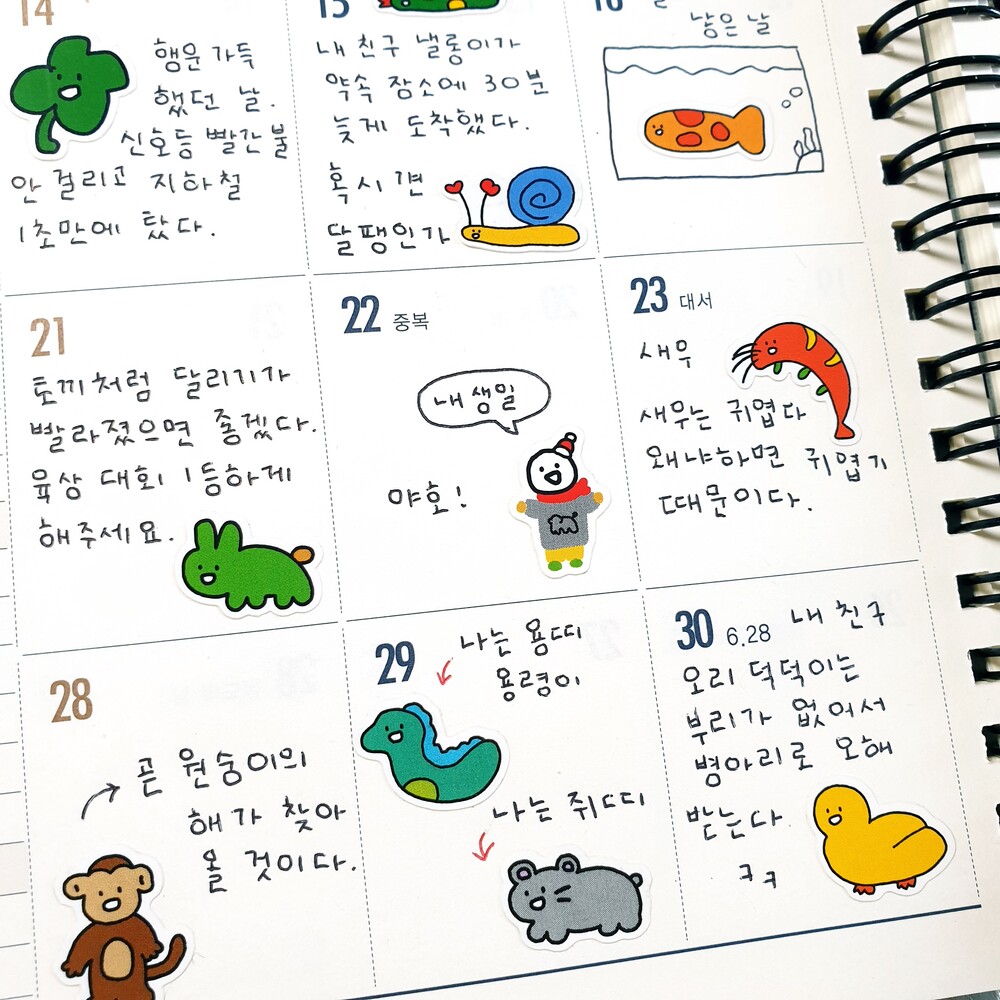 14
행운 가득
했던 날.
신호등 빨간불
안 걸리고 지하철
1초만에 탔다.
15
내 친구 낼롱이가
약속 장소에 30분
늦게 도착했다.
혹시 걘
달팽인가
16
낳은 날
21
토끼처럼 달리기가
빨라졌으면 좋겠다.
육상 대회 1등하게
해주세요.
22 중복
내 생일
야호!
23 대서
새우
새우는 귀엽다
왜냐하면 귀엽기
때문이다.
28
곧 원숭이의
해가 찾아
올 것이다.
29
나는 용띠
용령이
나는 쥐띠
30 6.28 내 친구
오리 덕덕이는
부리가 없어서
병아리로 오해
받는다
ㅋㅋ